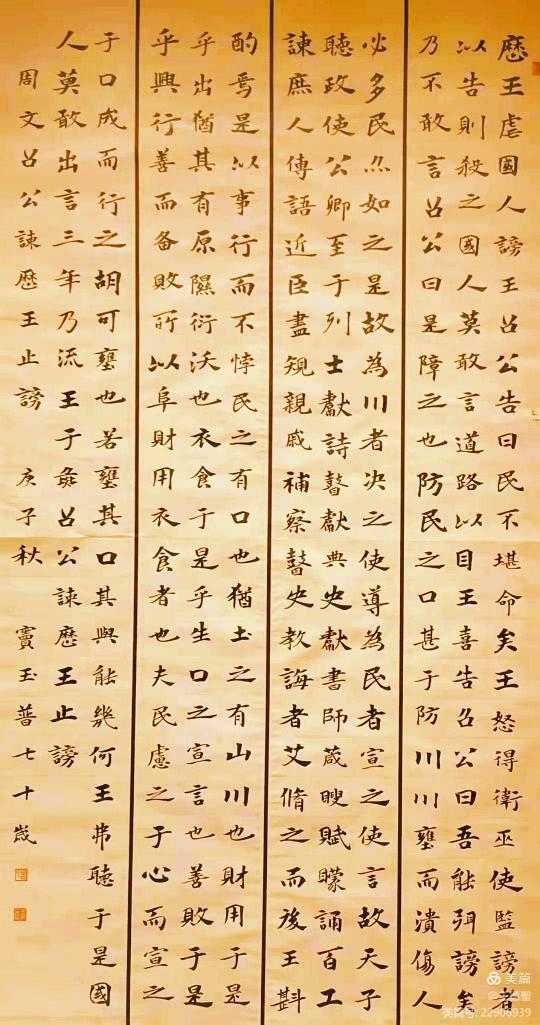 歷王虐國人謗王召公告曰民不堪命矣王怒得衛巫使監謗者
以告則殺之國人莫敢言道路以目王喜告召公曰吾能弭謗矣
乃不敢言召公曰是障之也防民之口甚于防川川壅而潰傷人
必多民亦如之是故為川者決之使導為民者宣之使言故天子
聽政使公卿至于列士獻詩瞽獻典史獻書師箴瞍賦矇誦百工
諫庶人傳語近臣盡規親戚補察瞽史教誨者艾脩之而後王斟
酌焉是以事行而不悖民之有口也猶土之有山川也財用于是
乎出猶其有原隰衍沃也衣食于是乎生口之宣言也善敗于是
乎興行善而备敗所以阜財用衣食者也夫民慮之于心而宣之
于口成而行之胡可壅也若壅其口其與能幾何王弗聽于是國
人莫敢出言三年乃流王于彘召公諫歷王止謗
周文召公諫歷王止謗 庚子秋 竇玉普七十歲
美篇
美篇号: 22906939